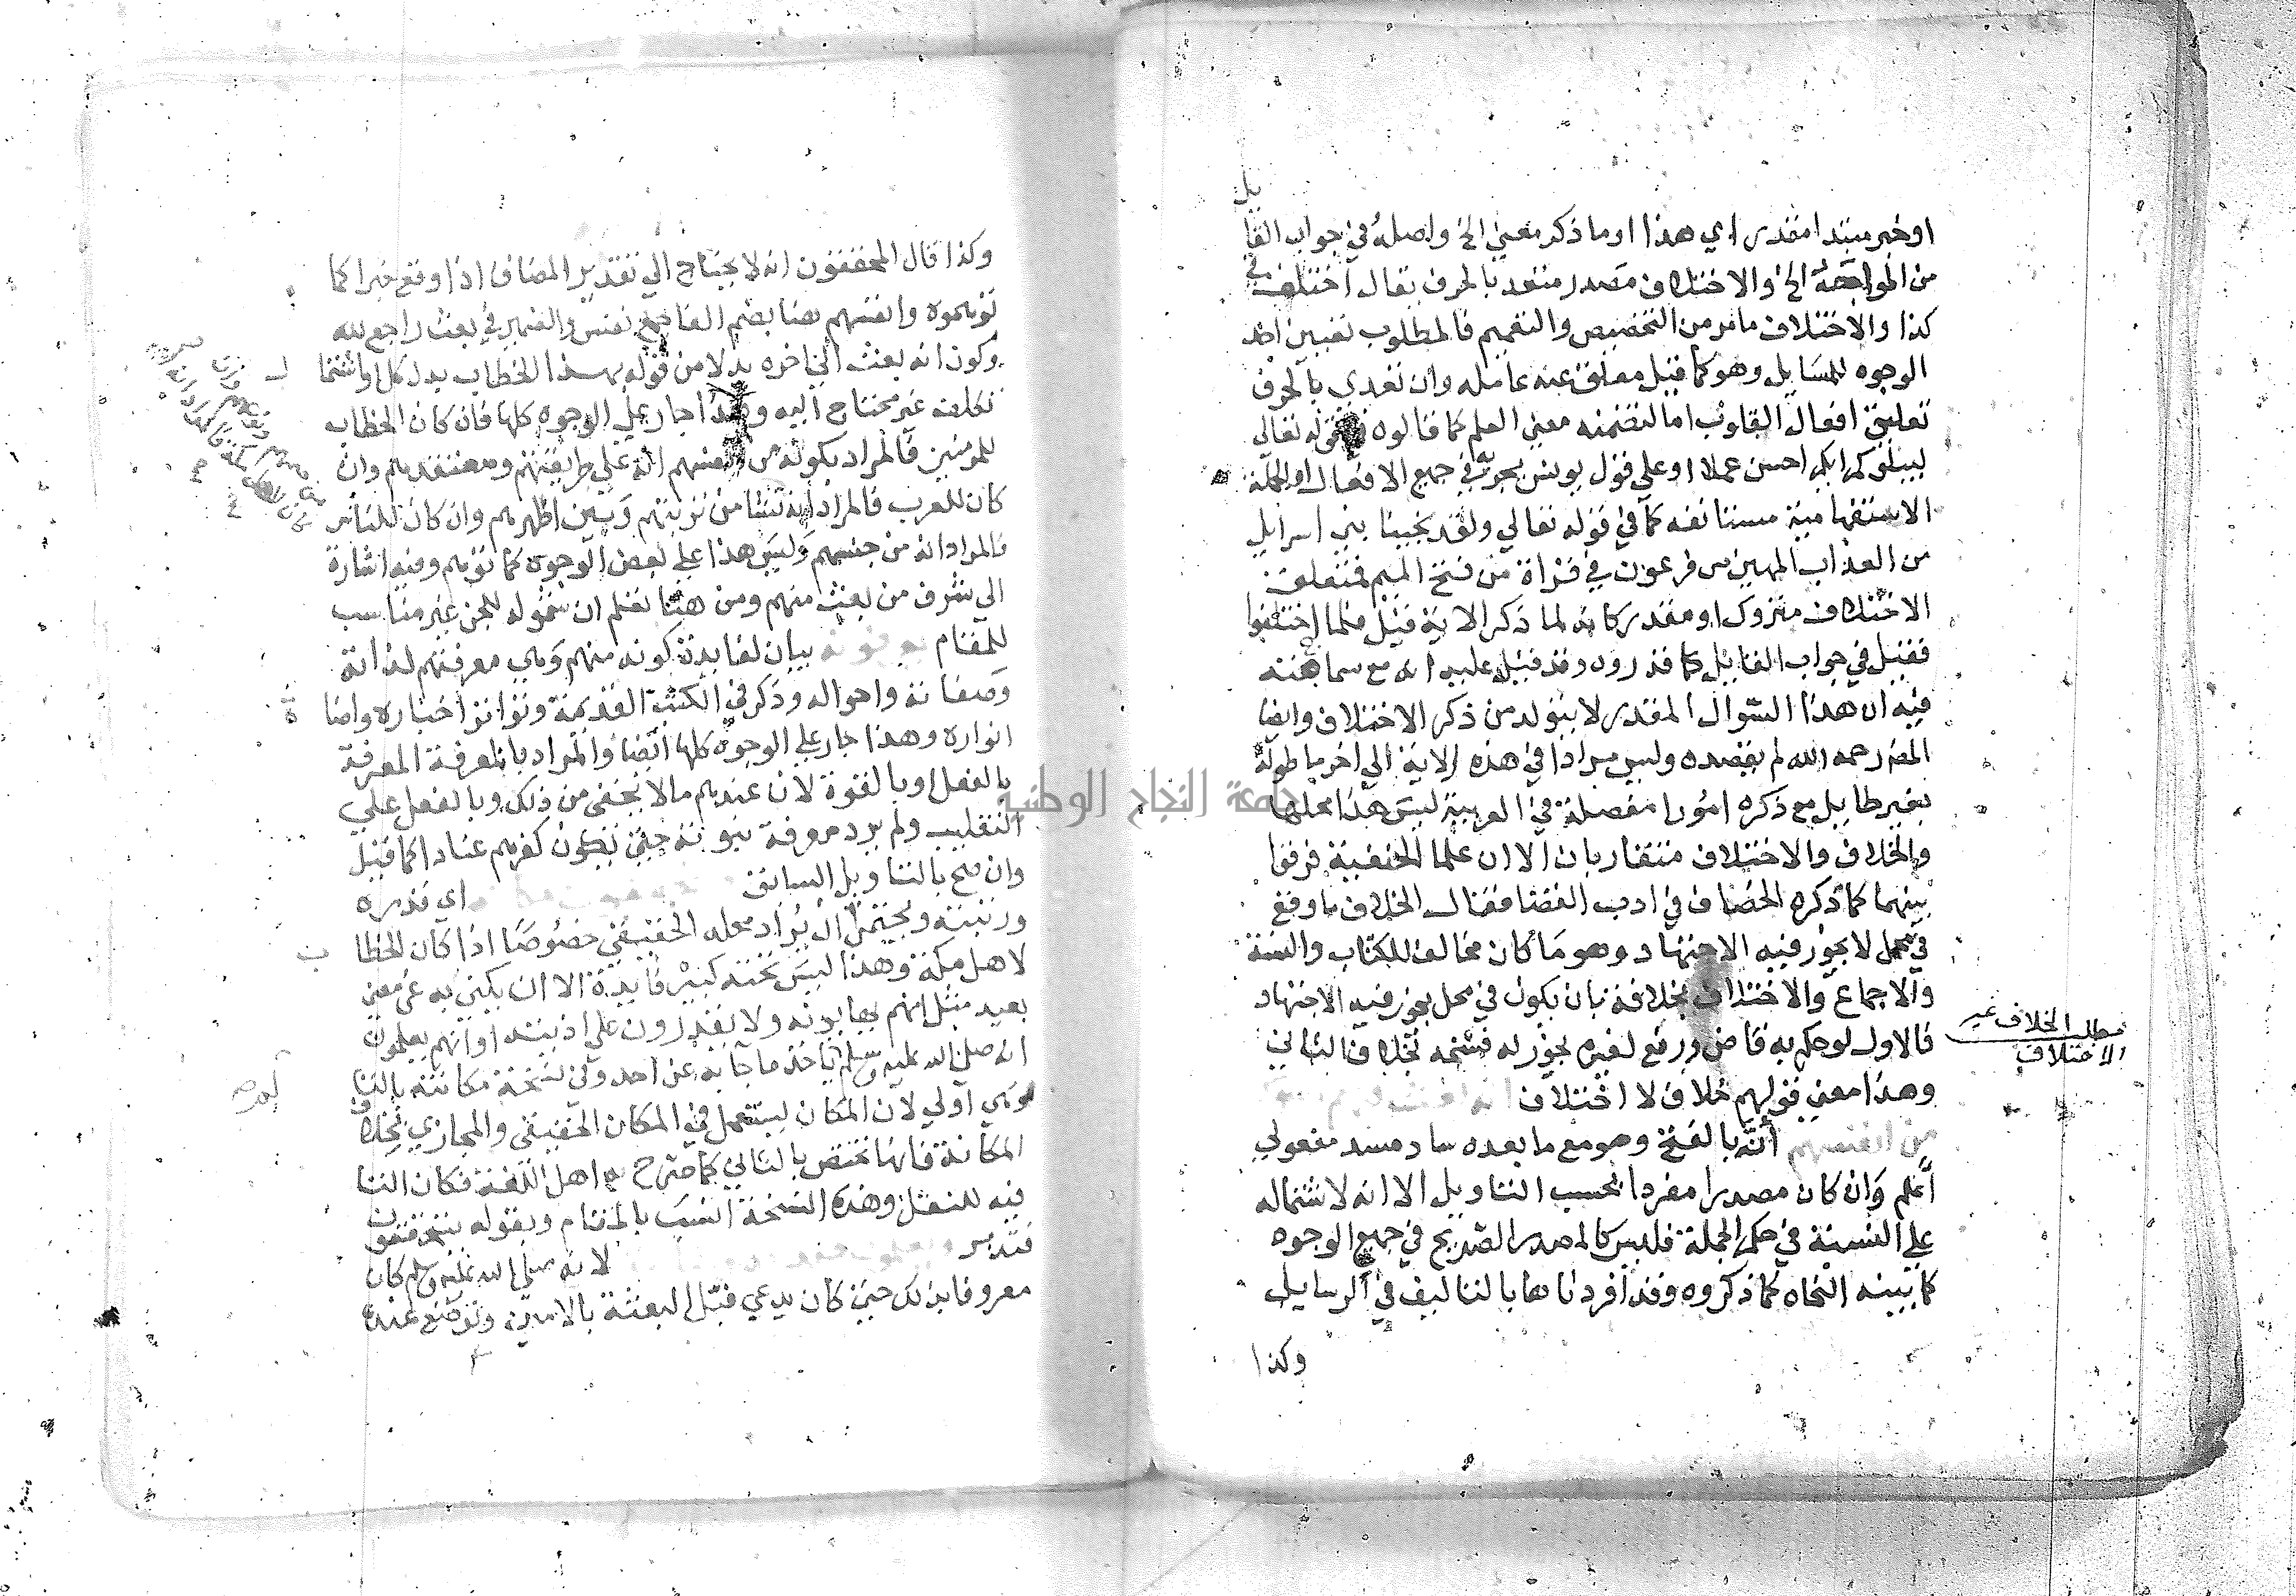 او خبر مبتدا مقدر اي هذا او ما ذكر معني الخ واصله في جواب القايل
من المواجهة الخ والاختلاف مصدر متعد بالحرف يقال اختلف في
كذا والاختلاف ما مر من التخصيص والتعميم فالمطلوب تعيين احد
الوجوه للسايل وهو كما قيل معلق عنه عامله وان تعدي بالحرف
تعليق افعال القلوب اما لتضمنه معني العلم كما قالوه في قوله تعالى
ليبلوكم ايكم احسن عملا او علي قول يونس بجريه في جميع الافعال او الجملة
الاستفهامية مستانفه كما في قوله تعالي ولقد نجينا بني اسرايل
من العذاب المهين من فرعون في قراة من فتح الميم فمتعلق
الاختلاف متروك او مقدر كانه لما ذكر الاية قيل فلما اختلفوا
فقيل في جواب القايل كما قدروه وقد قيل عليه انه مع سماجته
فيه ان هذا السوال المقدر لا يتولد من ذكر الاختلاف وايضا
المص رحمه الله لم يقصده وليس مرادا في هذه الاية الي اخر ما طوله
بغير طايل مع ذكره امورا مفصلة في العربية ليس هذا محلها
والخلاف والاختلاف متقاربان الا ان علما الحنفية فرقوا
بينهما كما ذكره الخصاف في ادب القضا فقال الخلاف ما وقع
في محل لا يجوز فيه الاجتهاد وهو ما كان مخالف للكتاب والسنة
والاجماع والاختلاف بخلافه بان يكون في محل يجوز فيه الاجتهاد
فالاول لو حكم به قاض ورفع لغيره يجوز له فسخه بخلاف الثاني
وهذا معني قولهم خلاف لا اختلاف
من انفسهم انه بالفتح وهو مع ما بعده ساد مسد مفعولي
اعلم وان كان مصدرا مفردا بحسب التاويل الا انه لاشتماله
علي النسبة في حكم الجملة فليس كالمصدر الصريح في جميع الوجوه
كما بينه النحاه كما ذكروه وقد افردناها بالتاليف في الرسايل
وكذا
مطلب الخلاف غير
الاختلاف
وكذا قال المحققون انه لا يحتاج الي تقدير المضاف اذا وقع خبرا كما
توهموه وانفسهم هنا بضم الفا جمع نفس والضمير في بعث راجع لله
وكون انه بعث الي اخره بدلا من قوله بهذا الخطاب بدل كل او اشتما
ل
تكلف غير محتاج اليه وهذا جار علي الوجوه كلها فان كان الخطاب
للمومنين فالمراد بكونه من انفسهم انه علي طريقتهم ومعتقدهم وان
كان للعرب فالمراد انه نشا من تربتهم وبين اظهرهم وان كان للناس
فالمراد انه من جنسهم وليس هذا علي بعض الوجوه كما توهم وفيه اشارة
الي شرف من بعث منهم ومن هنا تعلم ان شموله للجن غير مناسب
للمقام بيان لفايدة كونه منهم وهي معرفتهم لذاته
وصفاته واحواله وذكر في الكتب القديمة وتواتر اخباره واضا
ة
انواره وهذا جار علي الوجوه كلها ايضا والمراد بالمعرفة المعرفة
بالفعل او بالقوة لان عندهم ما لا يخفى من ذلك وبالفعل علي
التغليب ولم يرد معرفة نبوته حتي يكون كفرهم عنادا كما قيل
وان صح بالتاويل السابق اي قدره
ورتبته ويحتمل ان يراد محله الحقيقي خصوصا اذا كان الخطا
ب
لاهل مكة وهذا ليس تحته كبير فايدة الا ان يكني به عن معني
بعيد مثل انهم يهابونه ولا يقدرون علي اذيته او انهم يعلمون
انه صلي الله عليه وسلم لم ياخذ ما جا به عن احد وفي نسخة مكانته بالتا
وهي اولي لان المكان يستعمل في المكان الحقيقي والمجازي بخلاف
المكانة فانها تختص بالثاني كما صرح به اهل اللغة فكان التا
فيه للنقل وهذه النسخة انسب بالمقام وبقوله يتحققون
فتدبر لانه صلي الله عليه وسلم كان
معروفا بذلك حتي كان يدعي قبل البعثة بالامين وتوضع عنده
جامعة النجاح الوطنية